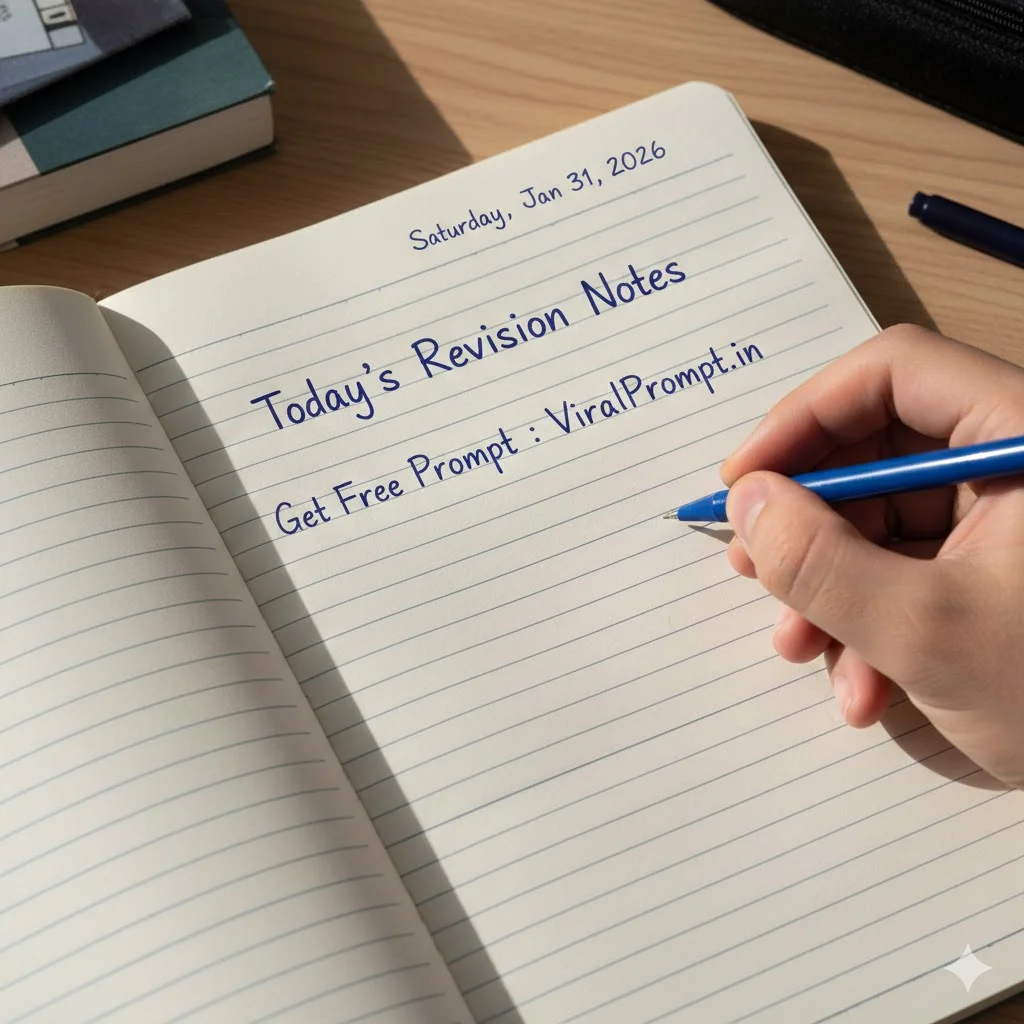 Saturday, Jan 31, 2026
Today's Revision Notes
Get Free Prompt : ViralPrompt.in